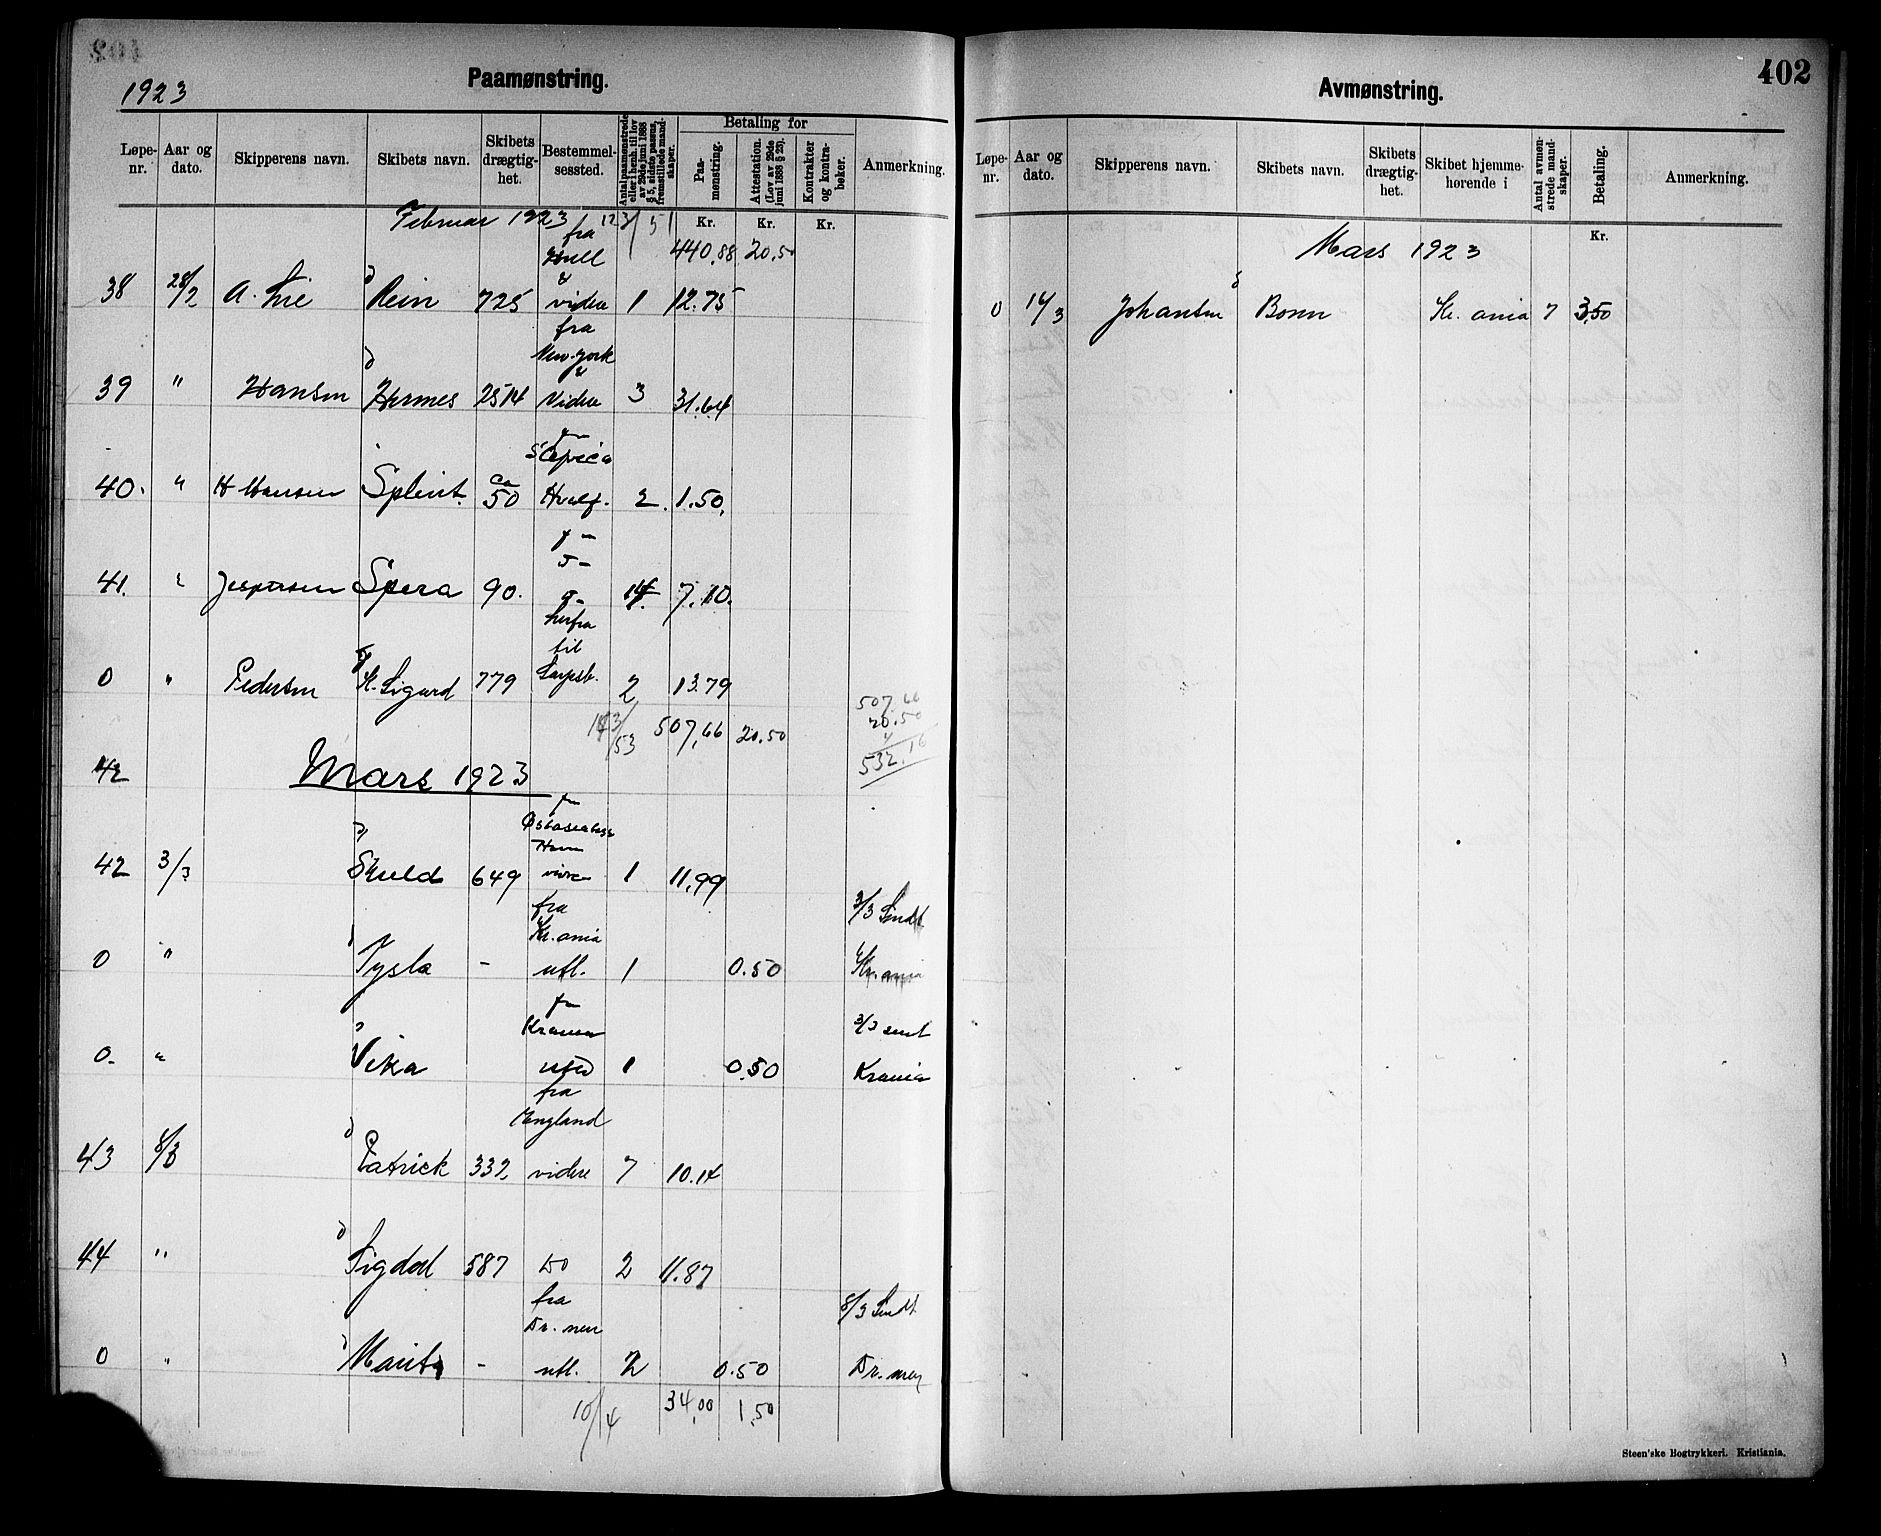 1923
Paamønstring.
Løpe-nr. Aar og dato. Skipperens navn. Skibets navn. Skibets drægtig-het. Bestemmel-sessted. Antal paamønstrede eller i henh. til lov av 29de juni 1888 § 5, sidste passus, fremstillede mand-skaper. Betaling for Paa-mønstring. Attestation. (Lov av 29de juni 1888 § 23). Kontrakter og kontra-bøker. Anmerkning.
Kr. Kr. Kr.
Februar 1923 123/51 440.88 20.50
fra
Hull
&
38 28/2 A. Lie Rein 725 videre 1 12.75
fra
New-York
&
39 " Hansen Hermes 2514 Videre 3 31.64
40. " H Hansen Splint. ca 50 Hvalf. 2. 1.50.
41. " Jespersen Spera 90. 14. 7.10.
herfra
til
0 " Pedersen K. Sigurd 779 Sarpsb. 2 13.79
143/53 507,66 20.50
507.66
20.50
4
532.16
42
Mars 1923
42 3/3 Skuld 649 videre 1 11.99
fra 3/3 Sendt
Kr. ania
0 " Tysla - utl. 1 0.50 Kr. ania
3/3 sent
0. " Vika 1 0.50 Krania
fra
England
43 6/3 Patrick 332 videre 7 10.14
44 " Sigdal 587 Do 2 11.87
fra 8/3 Sendt
Dr. men
0 " Marita - utl. 2 0.50 Dr. men
10/4 34,00 1,50
402
Avmønstring.
Løpe-nr. Aar og dato. Skipperens navn. Skibets navn. Skibets drægtig-het. Skibet hjemme-hørende i Antal avmøn-strede mand-skaper. Betaling. Anmerkning.
Kr.
Mars 1923
0 14/3 Johansen Bonn Kr. ania 7 3.50
Steen'ske Bogtrykkeri. Kristiania.